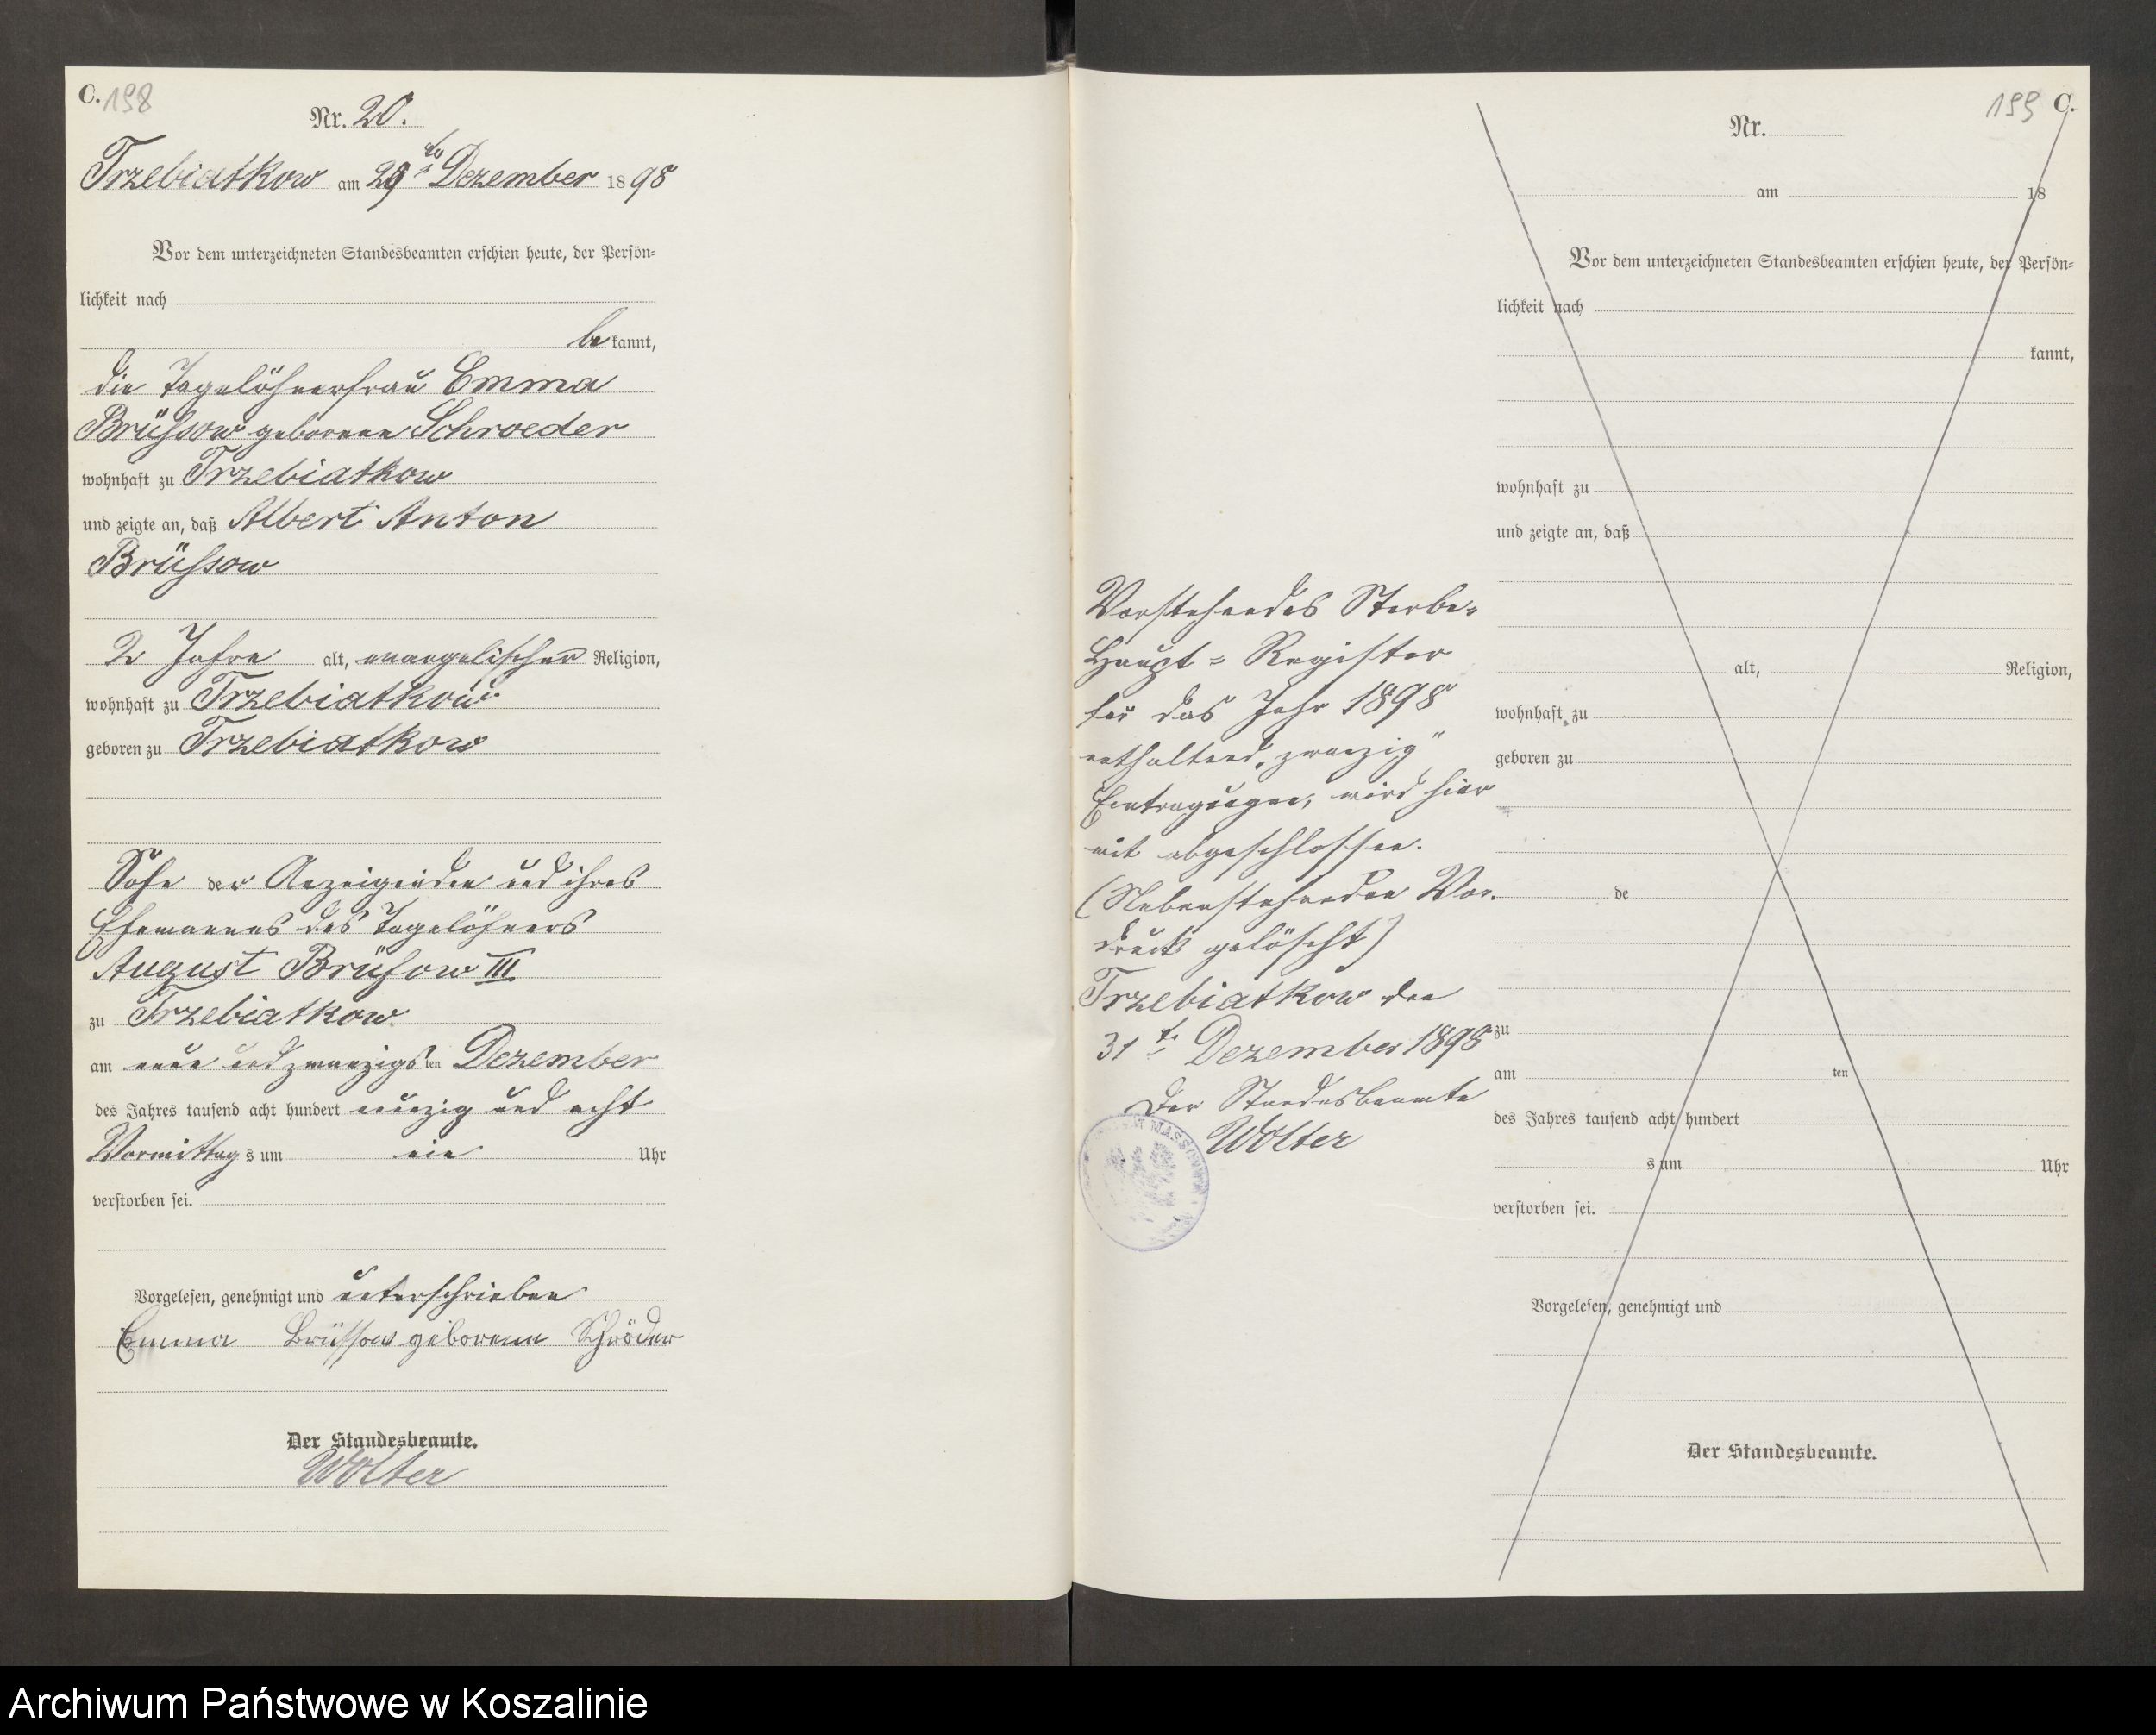 C. 198
Nr. 20.
Trzebiatkow am 29ten Dezember 1898
Vor dem unterzeichneten Standesbeamten erschien heute, der Persön=
lichkeit nach
bekannt,
die Tagelöhnerfrau Emma
Brüssow geborene Schroeder
wohnhaft zu Trzebiatkow
und zeigte an, daß Albert Anton
Brüssow
2 Jahre alt, evangelischer Religion,
wohnhaft zu Trzebiatkow
geboren zu Trzebiatkow
Sohn der Anzeigenden und ihres
Ehemannes des Tagelöhners
August Brüssow III
zu Trzebiatkow
am neun und zwanzigsten Dezember
des Jahres tausend acht hundert neunzig und acht
Vormittags um ein Uhr
verstorben sei.
Vorgelesen, genehmigt und unterschrieben
Emma Brüssow geborene Schröder
Der Standesbeamte.
Wolter
199 C.
Nr.
am 18
Vor dem unterzeichneten Standesbeamten erschien heute, der Persön=
lichkeit nach
kannt,
wohnhaft zu
und zeigte an, daß
alt, Religion,
wohnhaft zu
geboren zu
de
zu
am ten
des Jahres tausend acht hundert
s um Uhr
verstorben sei.
Vorgelesen, genehmigt und
Der Standesbeamte.
Vorstehendes Sterbe=
Haupt=Register
für das Jahr 1898
enthaltend „zwanzig"
Eintragungen, wird hier
mit abgeschlossen.
(Nebenstehender Vor.
druck gelöscht)
Trzebiatkow den
31t. Dezember 1898
Der Standesbeamte
Wolter
Archiwum Państwowe w Koszalinie